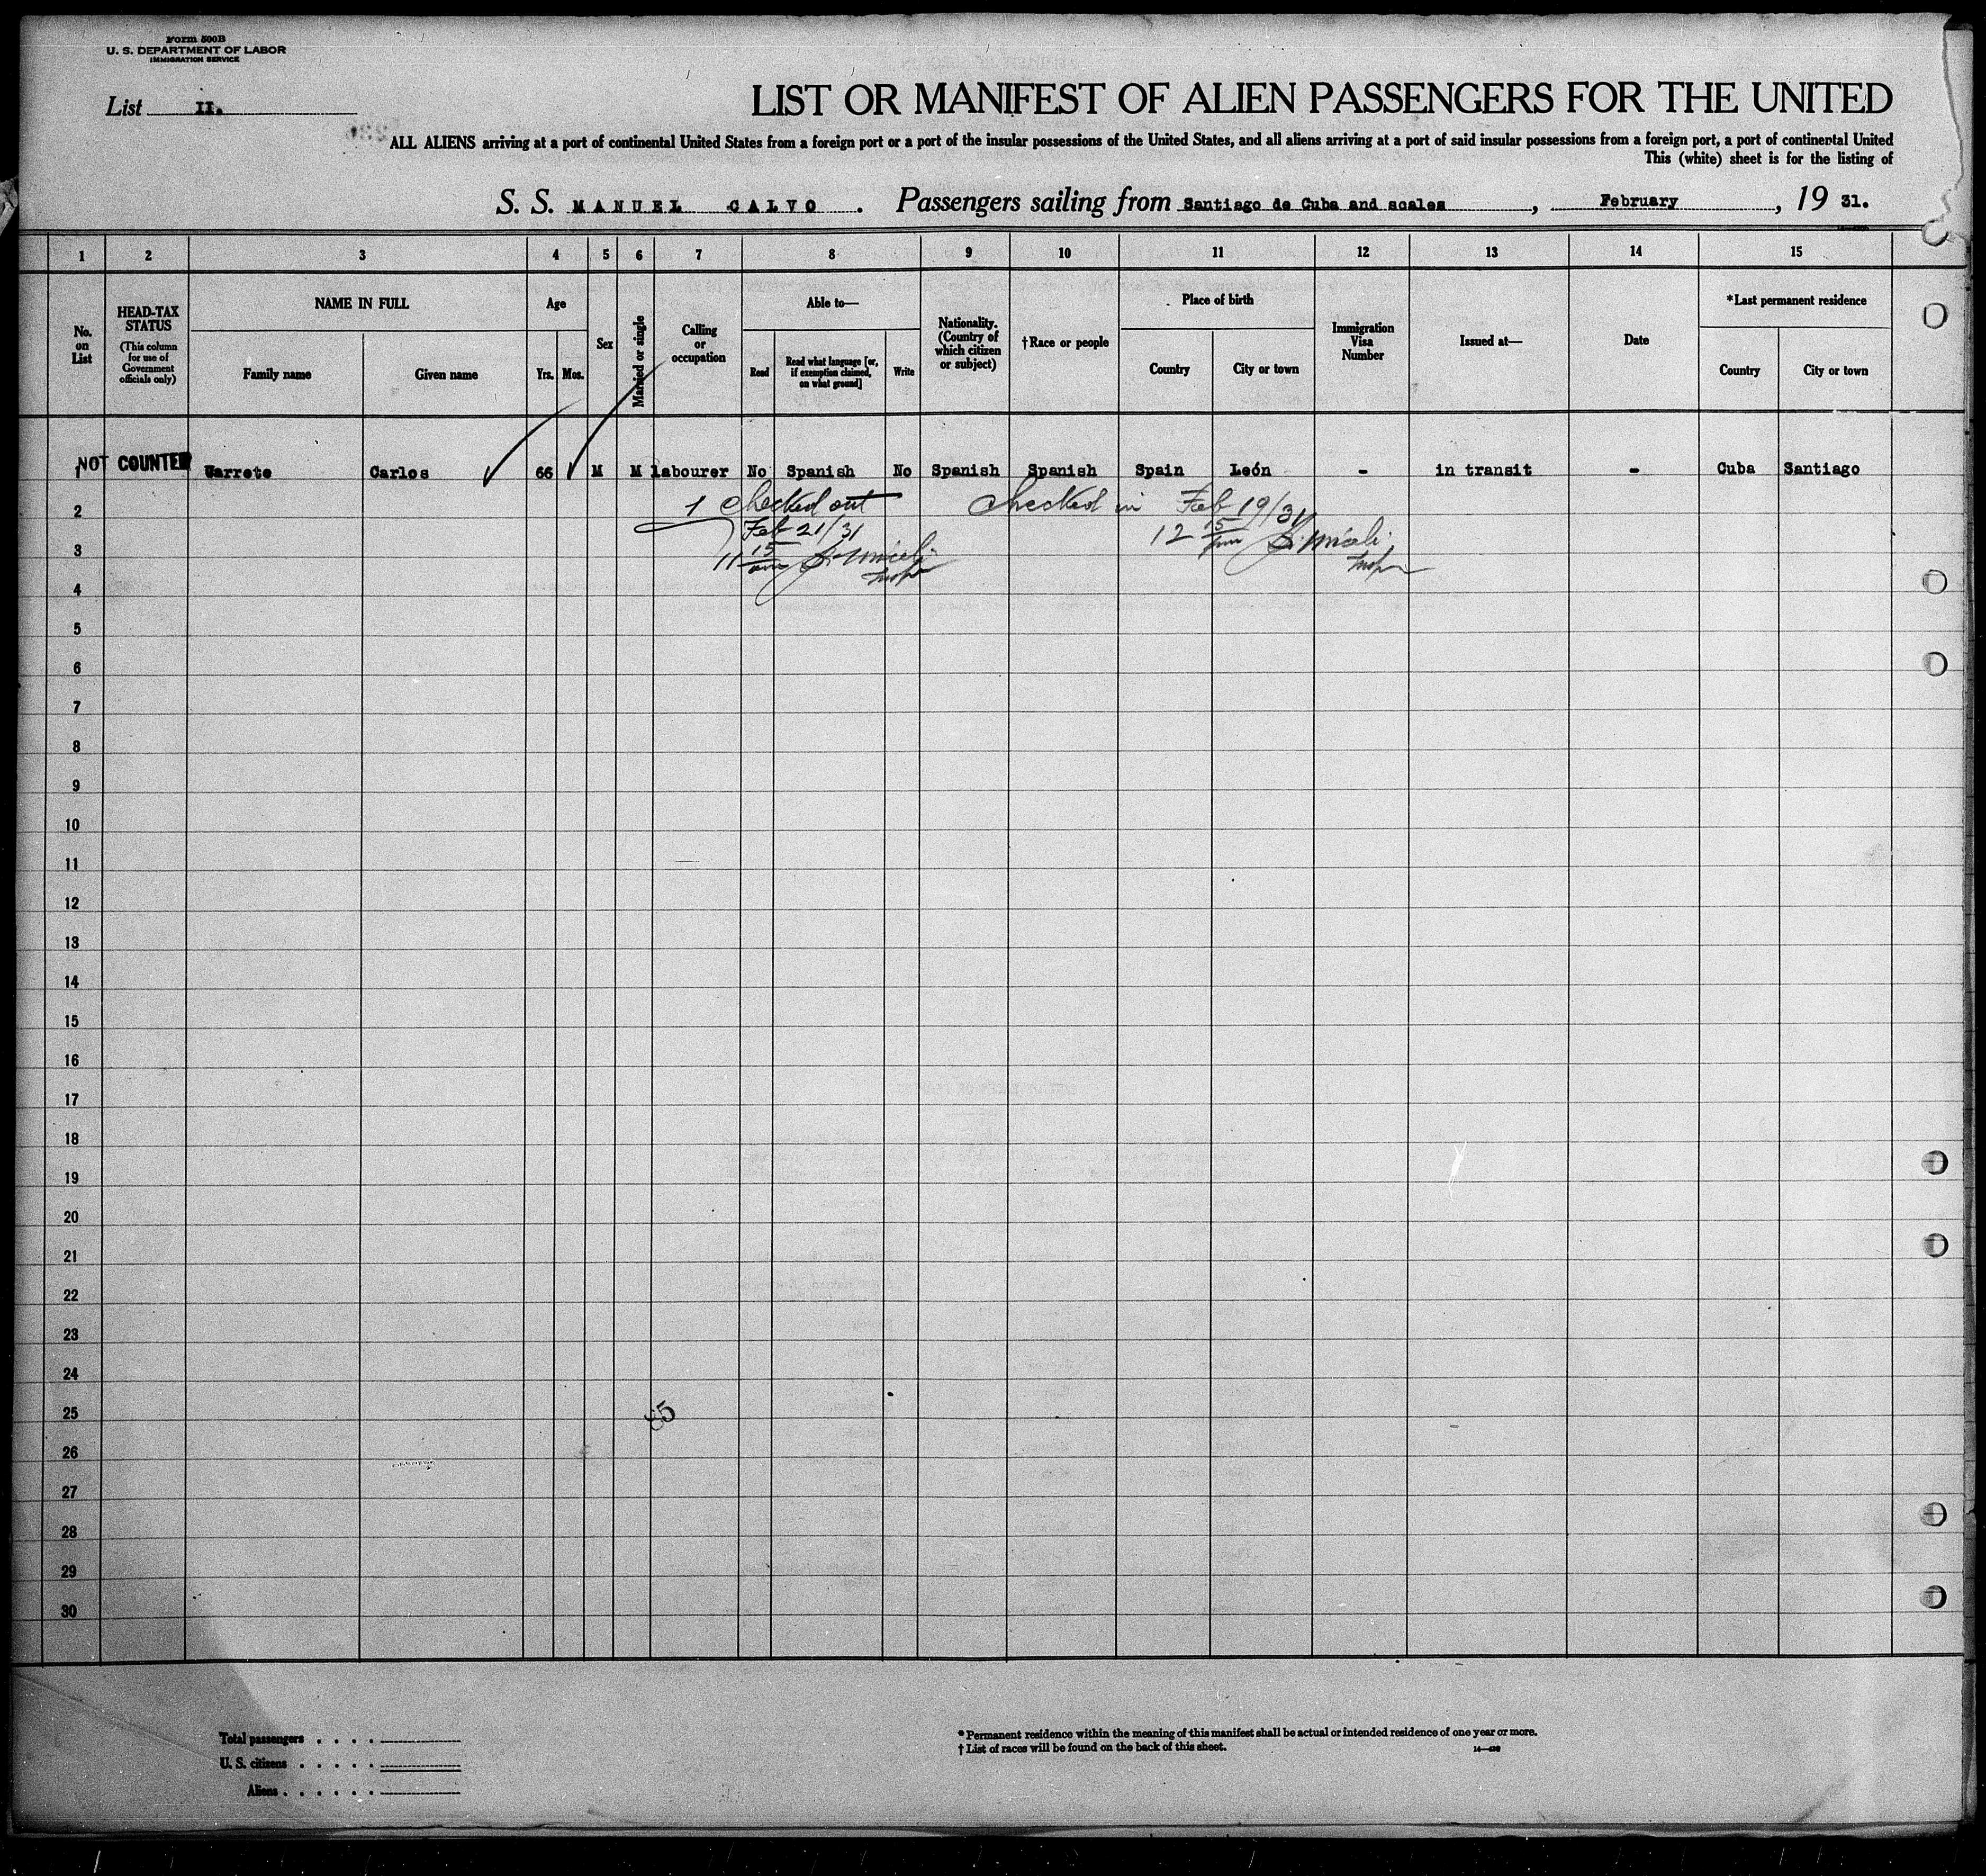 Form 500B
U. S. DEPARTMENT OF LABOR
IMMIGRATION SERVICE
List II.
LIST OR MANIFEST OF ALIEN PASSENGERS FOR THE UNITED
ALL ALIENS arriving at a port of continental United States from a foreign port or a port of the insular possessions of the United States, and all aliens arriving at a port of said insular possessions from a foreign port, a port of continental United
This (white) sheet is for the listing of
S. S. MANUEL CALVO . Passengers sailing from Santiago de Cuba and scales , February , 19 31.
1 2 3 4 5 6 7 8 9 10 11 12 13 14 15
No. on List
HEAD-TAX STATUS
(This column for use of Government officials only)
NAME IN FULL
Family name
Given name
Age
Yrs.
Mos.
Sex
Married or single
Calling or occupation
Able to—
Read
Read what language [or, if exemption claimed, on what ground]
Write
Nationality. (Country of which citizen or subject)
†Race or people
Place of birth
Country
City or town
Immigration Visa Number
Issued at—
Date
*Last permanent residence
Country
City or town
1 NOT COUNTED Carlos 66 M M labourer No Spanish No Spanish Spanish Spain León - in transit - Cuba Santiago
2 1 Checked out Checked in Feb 19/31
Feb 21/31
12 15 pm
3 11 15 am
4
5
6
7
8
9
10
11
12
13
14
15
16
17
18
19
20
21
22
23
24
25
26
27
28
29
30
Total passengers . . . .
U. S. citizens . . . . .
Aliens . . . . . .
* Permanent residence within the meaning of this manifest shall be actual or intended residence of one year or more.
† List of races will be found on the back of this sheet.